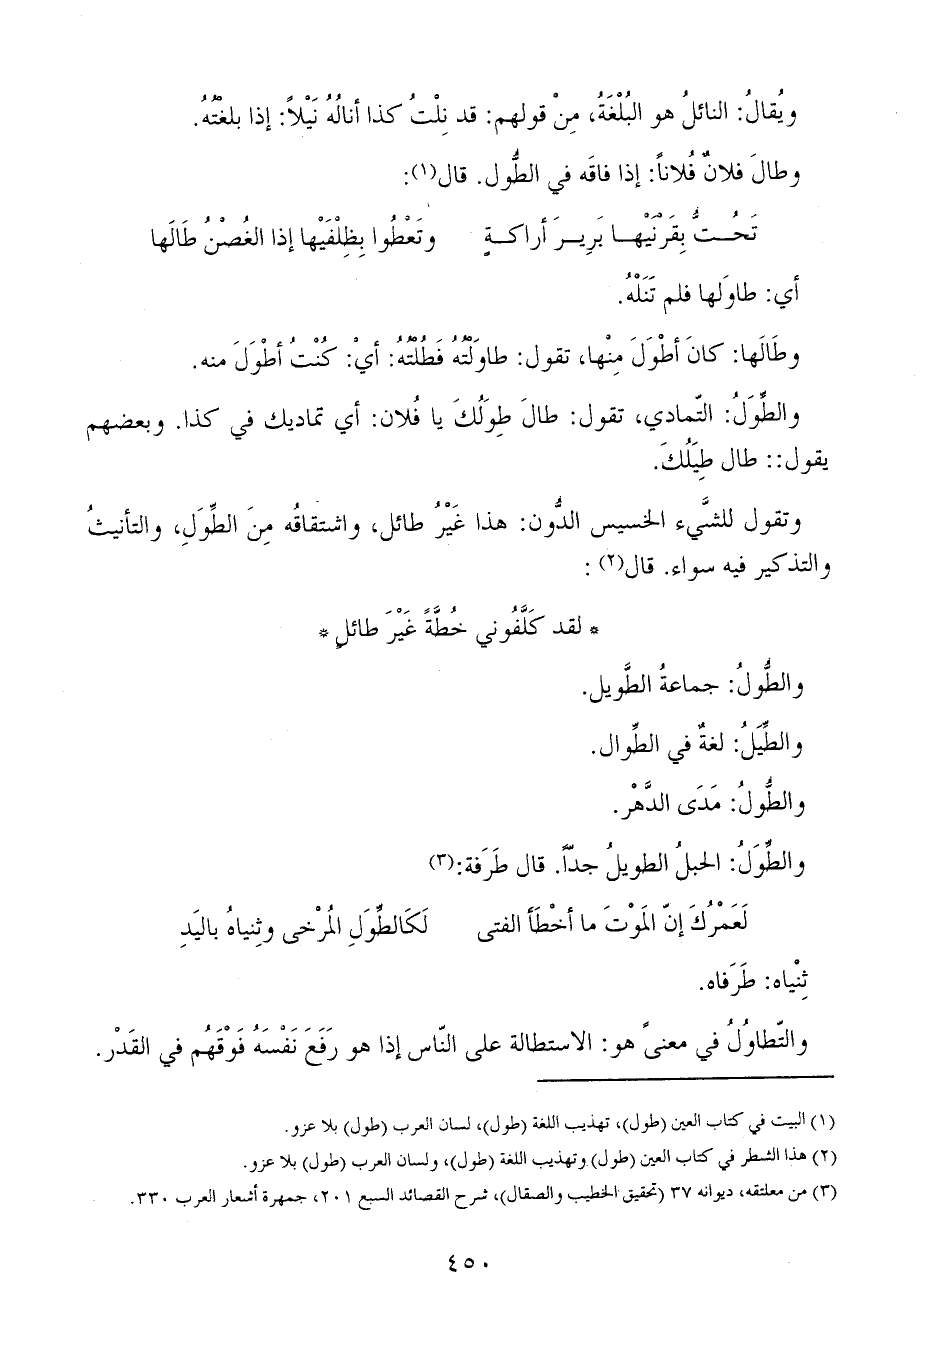 ويُقالُ: النائلُ هو البُلْغَةُ، مِنْ قولهم: قد نِلْتُ كذا أنالُهُ نَيْلاً: إذا بلغْتُهُ.
وطالَ فلانٌ فُلاناً: إذا فاقَه في الطُّول. قال(١):
تَحُــتُّ بِقَرْنَيْهــا بَرِيرَ أراكــةٍ وتَعْطُوا بِظِلْفَيْها إذا الغُصْنُ طَالَها
أي: طاوَلها فلم تَنَلْهُ.
وطَالَها: كانَ أطْوَلَ مِنْها، تقول: طاوَلْتُهُ فَطُلْتُهُ: أيْ: كُنْتُ أطْوَلَ منه.
والطِّوَلُ: التّمادي، تقول: طالَ طِوَلُكَ يا فُلان: أي تماديك في كذا. وبعضهم
يقول:: طال طِيَلُكَ.
وتقول للشَّيء الخسيس الدُّون: هذا غَيْرُ طائل، واشتقاقُه مِنَ الطِّوَلِ، والتأنيثُ
والتذكير فيه سواء. قال(٢) :
* لقد كَلَّفُوني خُطَّةً غَيْرَ طائلٍ *
والطُّولُ: جماعةُ الطَّويل.
والطِّيَلُ: لغةٌ في الطِّوال.
والطُّولُ: مَدَى الدَّهْر.
والطِّوَلُ: الحبلُ الطويلُ جدّاً. قال طَرَفة:(٣)
لَعَمْرُكَ إنّ المَوْتَ ما أخْطَأَ الفتى لَكَالطِّوَلِ المُرْخى وثِنياهُ باليَدِ
ثِنْياه: طَرَفاه.
والتّطاوُلُ في معنىً هو: الاستطالة على النّاس إذا هو رَفَعَ نَفْسَهُ فَوْقَهُم في القَدْر.
(١) البيت في كتاب العين (طول)، تهذيب اللغة (طول)، لسان العرب (طول) بلا عزو.
(٢) هذا الشطر في كتاب العين (طول) وتهذيب اللغة (طول)، ولسان العرب (طول) بلا عزو.
(٣) من معلقته، ديوانه ٣٧ (تحقيق الخطيب والصقال)، شرح القصائد السبع ٢٠١، جمهرة أشعار العرب ٣٣٠.
٤٥٠